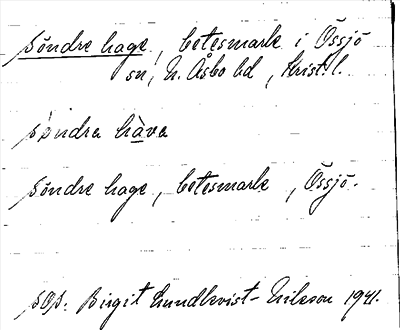 söndre hage, betesmark i Össjö
sn, N. Åsbo hd, Krist. l.
söndra hàva
söndre hage, betesmark, Össjö.
pop. Birgit Lundkvist-Nilsson 1941.